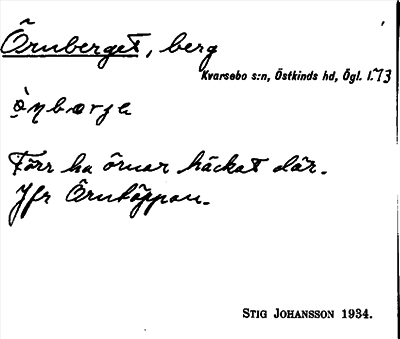 Örnberget, berg
Kvarsebo s:n, Östkinds hd, Ögl. l. 73
Förr ha örnar häckat där.
Jfr Örnköppan.
STIG JOHANSSON 1934.